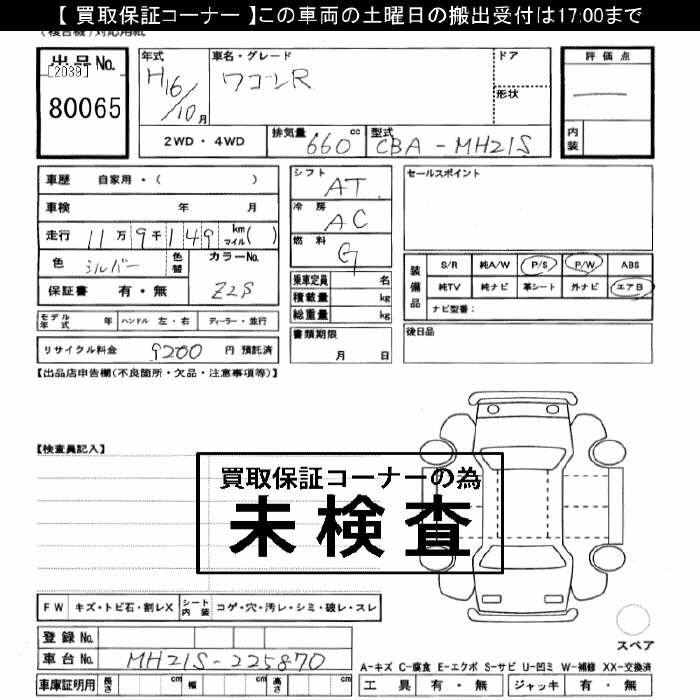 【 買取保証コーナー 】この車両の土曜日の搬出受付は17:00まで
(複合機)対応用紙
出品No.
[2039]
80065
年式
H16/10月
車名・グレード
ワゴンR
ドア
形状
評価点
内装
2WD・4WD
排気量 660 cc
型式 CBA-MH21S
車歴 自家用・( )
車検 年 月
走行 11万9千149 km マイル( )
色 シルバー 色替
カラーNo. Z2S
保証書 有・無
モデル年式 年 ハンドル 左・右 ディーラー・並行
リサイクル料金 9200 円 預託済
シフト AT
冷房 AC
燃料 G
乗車定員 名
積載量 kg
総重量 kg
書類期限
月 日
セールスポイント
装備品
S/R 純A/W P/S P/W ABS
純TV 純ナビ 革シート 外ナビ エアB
ナビ型番:
後日品
【出品店申告欄(不良箇所・欠品・注意事項等)】
【検査員記入】
買取保証コーナーの為
未検査
FW キズ・トビ石・割レX シート内装 コゲ・穴・汚レ・シミ・破レ・スレ
登録No.
車台No. MH21S-225870
車庫証明用 長さ cm 幅 cm 高さ cm
スペア
A-キズ C-腐食 E-エクボ S-サビ U-凹ミ W-補修 XX-交換済
工具 有・無 ジャッキ 有・無